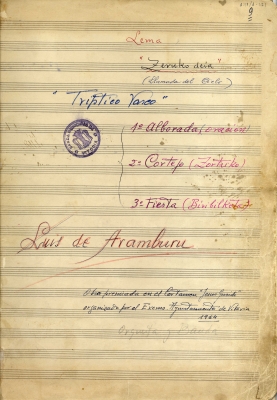 9
Lema
"Zeruko deia"
(Llamada del Cielo)
"Tríptico Vasco"
1º Alborada (oración)
2º Cortejo (Zortziko)
3º Fiesta (Biribilketa)
Luis de Aramburu
Obra premiada en el Certamen "Jesus Guridi"
organizado por el Excmo Ayuntamiento de Vitoria